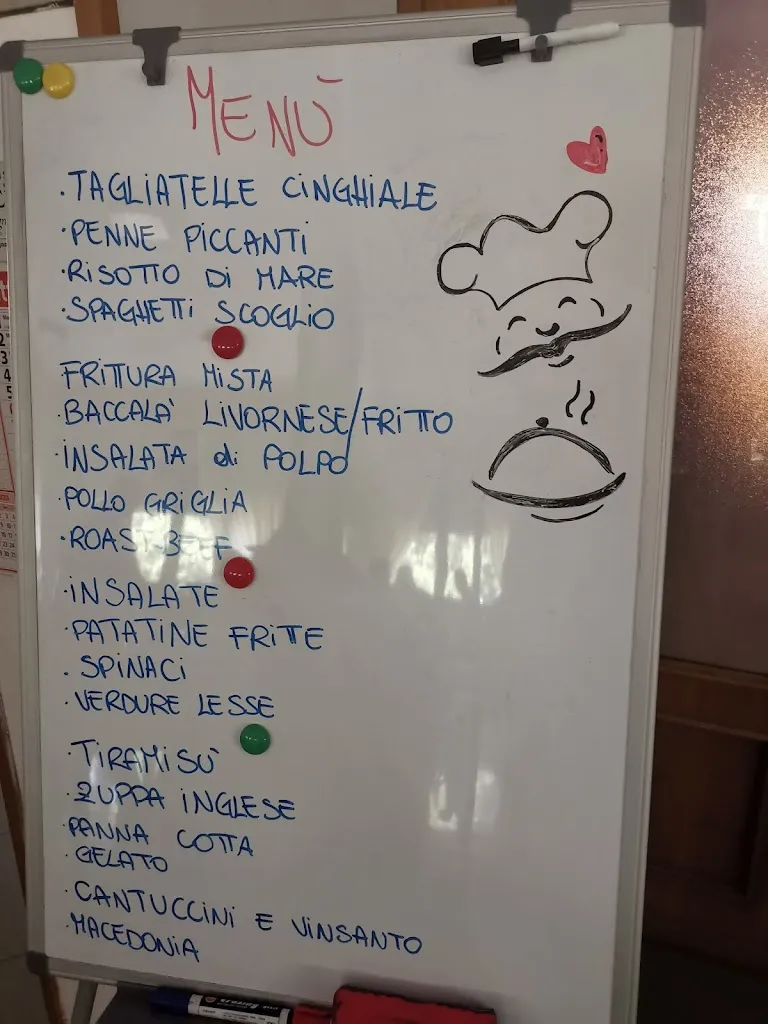 MENÙ
·TAGLIATELLE CINGHIALE
·PENNE PICCANTI
·RISOTTO DI MARE
·SPAGHETTI SCOGLIO
FRITTURA MISTA
·BACCALA' LIVORNESE/FRITTO
·INSALATA di POLPO
·POLLO GRIGLIA
·ROAST-BEEF
·INSALATE
·PATATINE FRITTE
·SPINACI
·VERDURE LESSE
·TIRAMISU'
·ZUPPA INGLESE
·PANNA COTTA
·GELATO
·CANTUCCINI E VINSANTO
·MACEDONIA